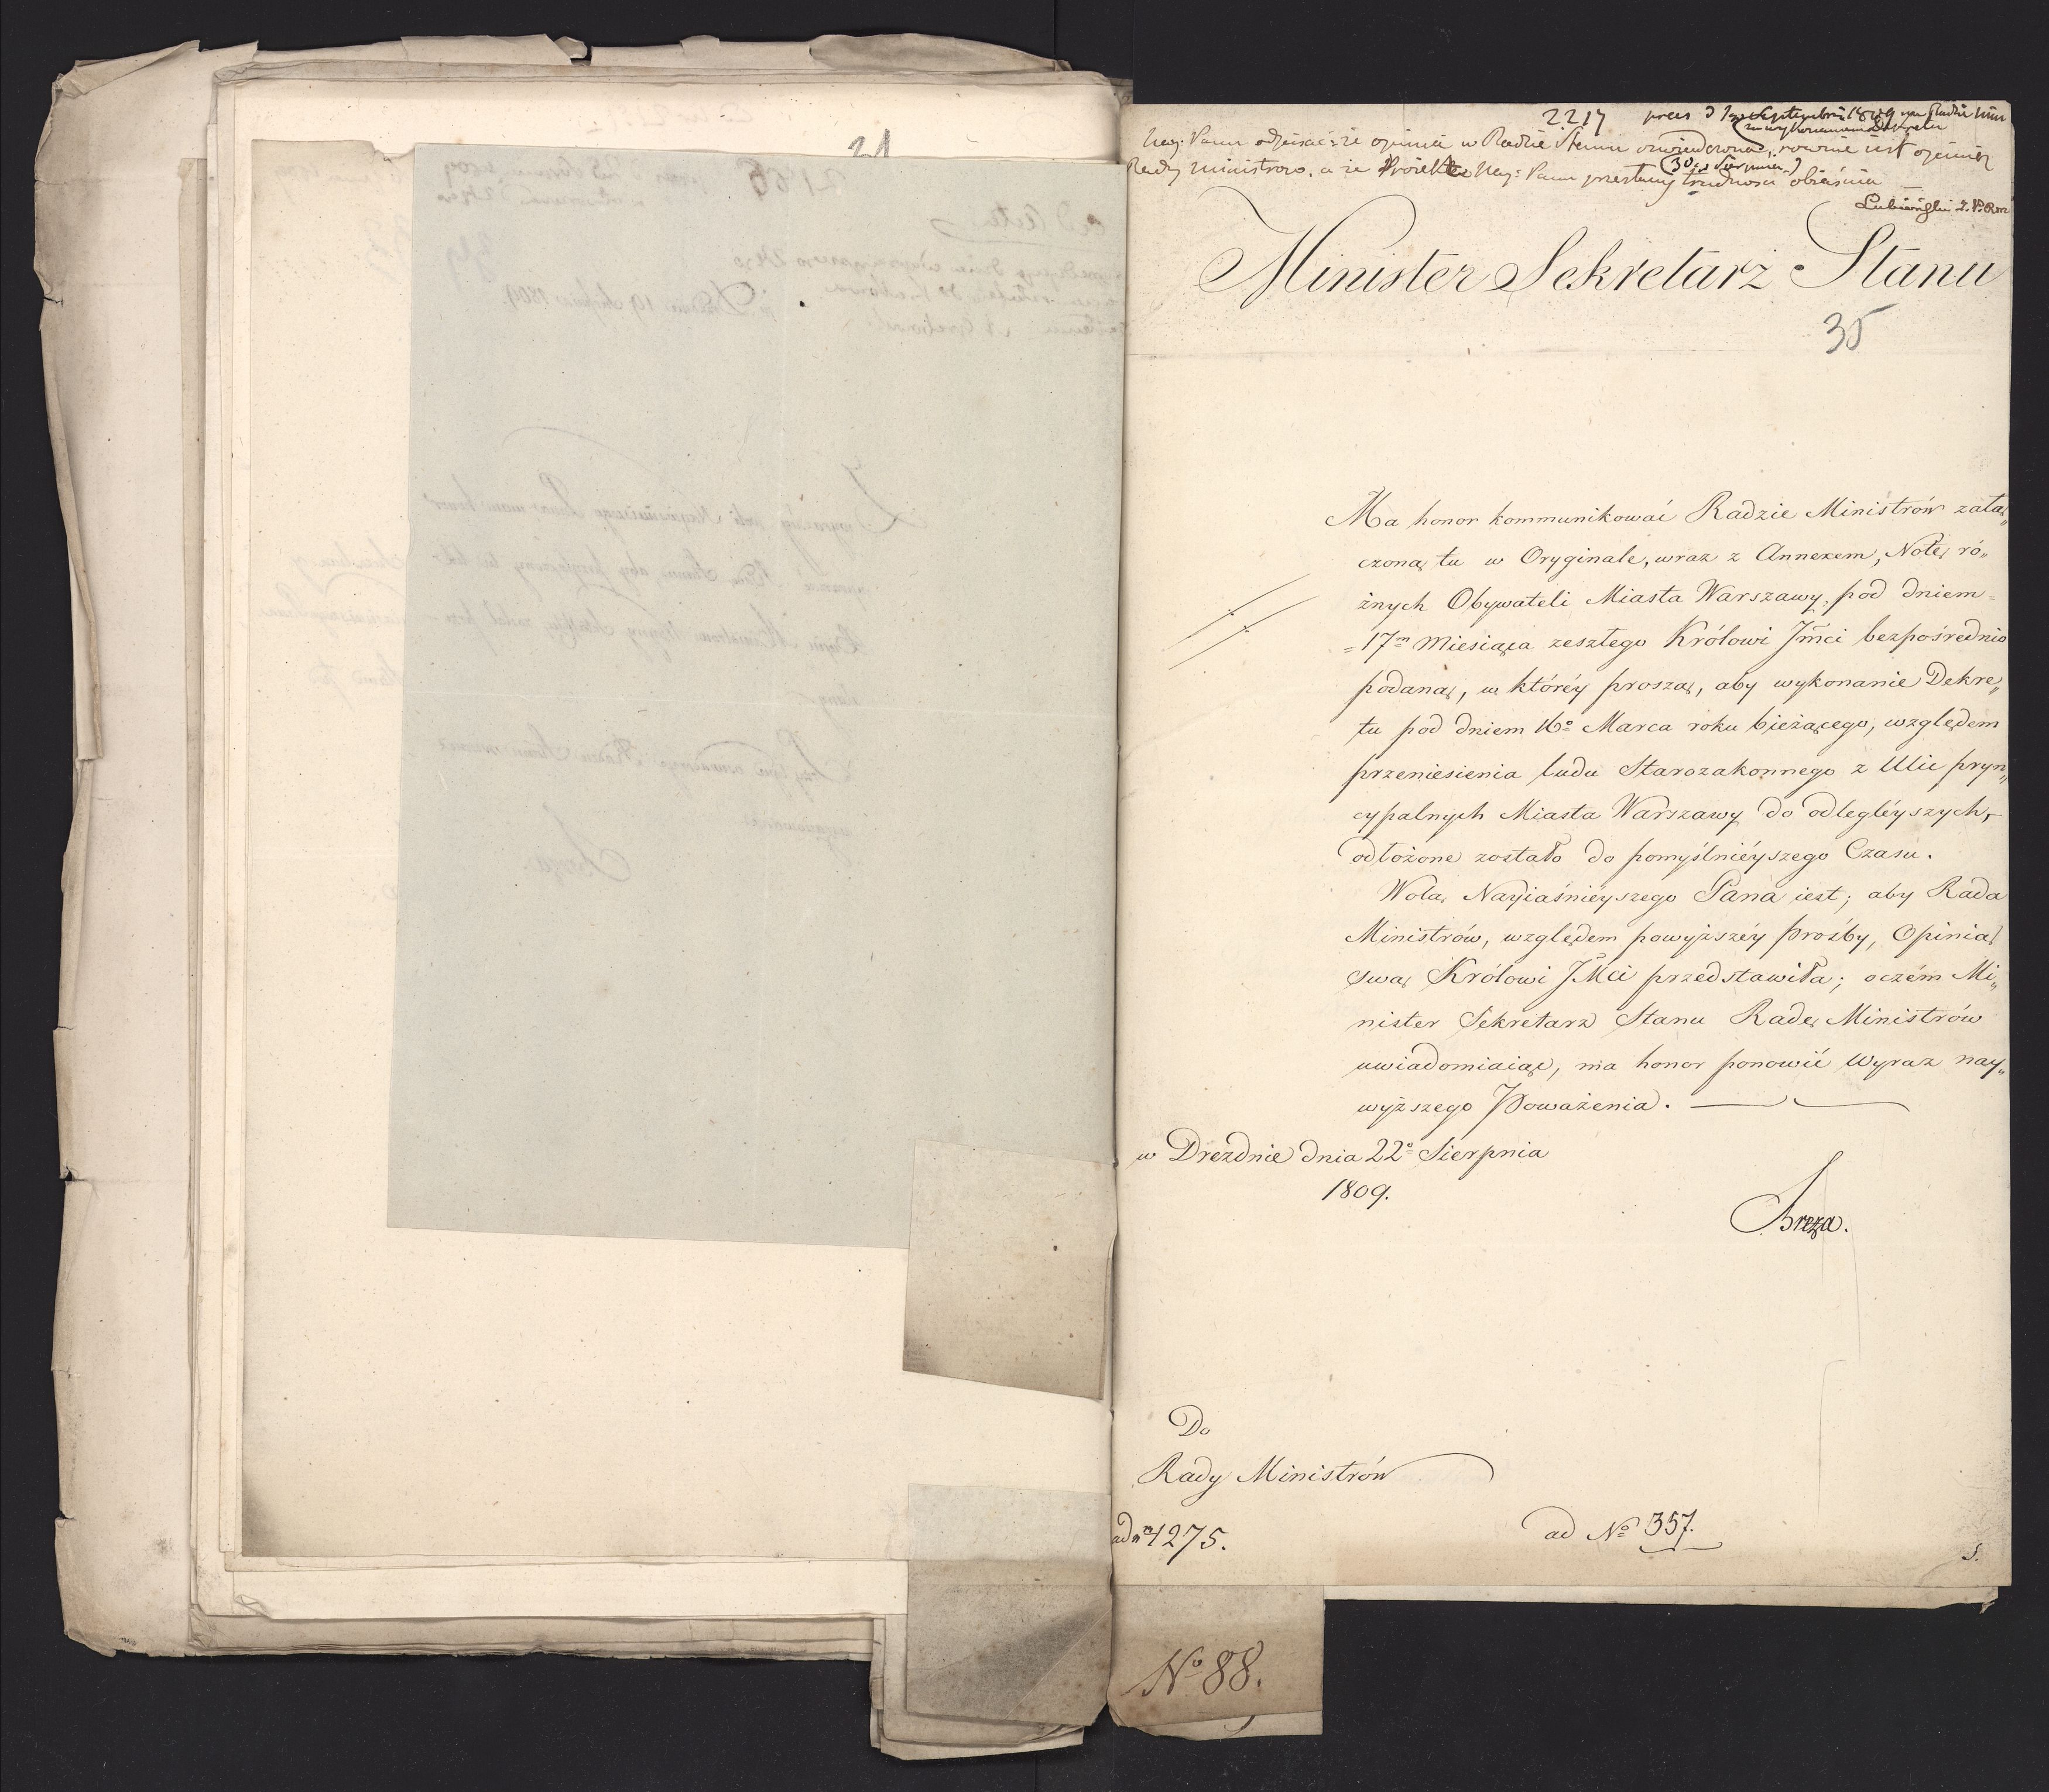 21
2217 pres d 1 Septembris 1809 na Radzie Min
za wykonaniem Dekretu
Nay: Panu odpisać że opinia w Radzie Stanu
30 Sierpnia
Rady Ministrow, a że Nay: Panu trudności obiaśnia
Lubieński
Minister Sekretarz Stanu
35
Ma honor kommunikować Radzie Ministrów załą„
czoną tu w Oryginale, wraz z Annexem, Notę ró„
żnych Obywateli Miasta Warszawy, pod dniem=
=17m Miesiąca zeszłego Królowi Jmci bezpośrednio
podaną, w któréy proszą, aby wykonanie Dekre„
tu pod dniem 16o Marca roku bieżącego, względem
przeniesienia ludu Starozakonnego z Ulic pryn„
cypalnych Miasta Warszawy do odległéyszych,
odłożone zostało do pomyślniéyszego Czasu.
Wolą Nayiaśniéyszego Pana iest; aby Rada
Ministrów, względem powyższéy prośby, Opinią
swą Królowi JMci przedstawiła; o czém Mi„
nister Sekretarz Stanu Radę Ministrów
uwiadomiaiąc, ma honor ponowić wyraz nay„
wyższego Poważenia.
w Dreźdnie dnia 22o Sierpnia
1809.
Breza.
Do
Rady Ministrów
ad No 1275.
ad No 357.
S.
No 88.